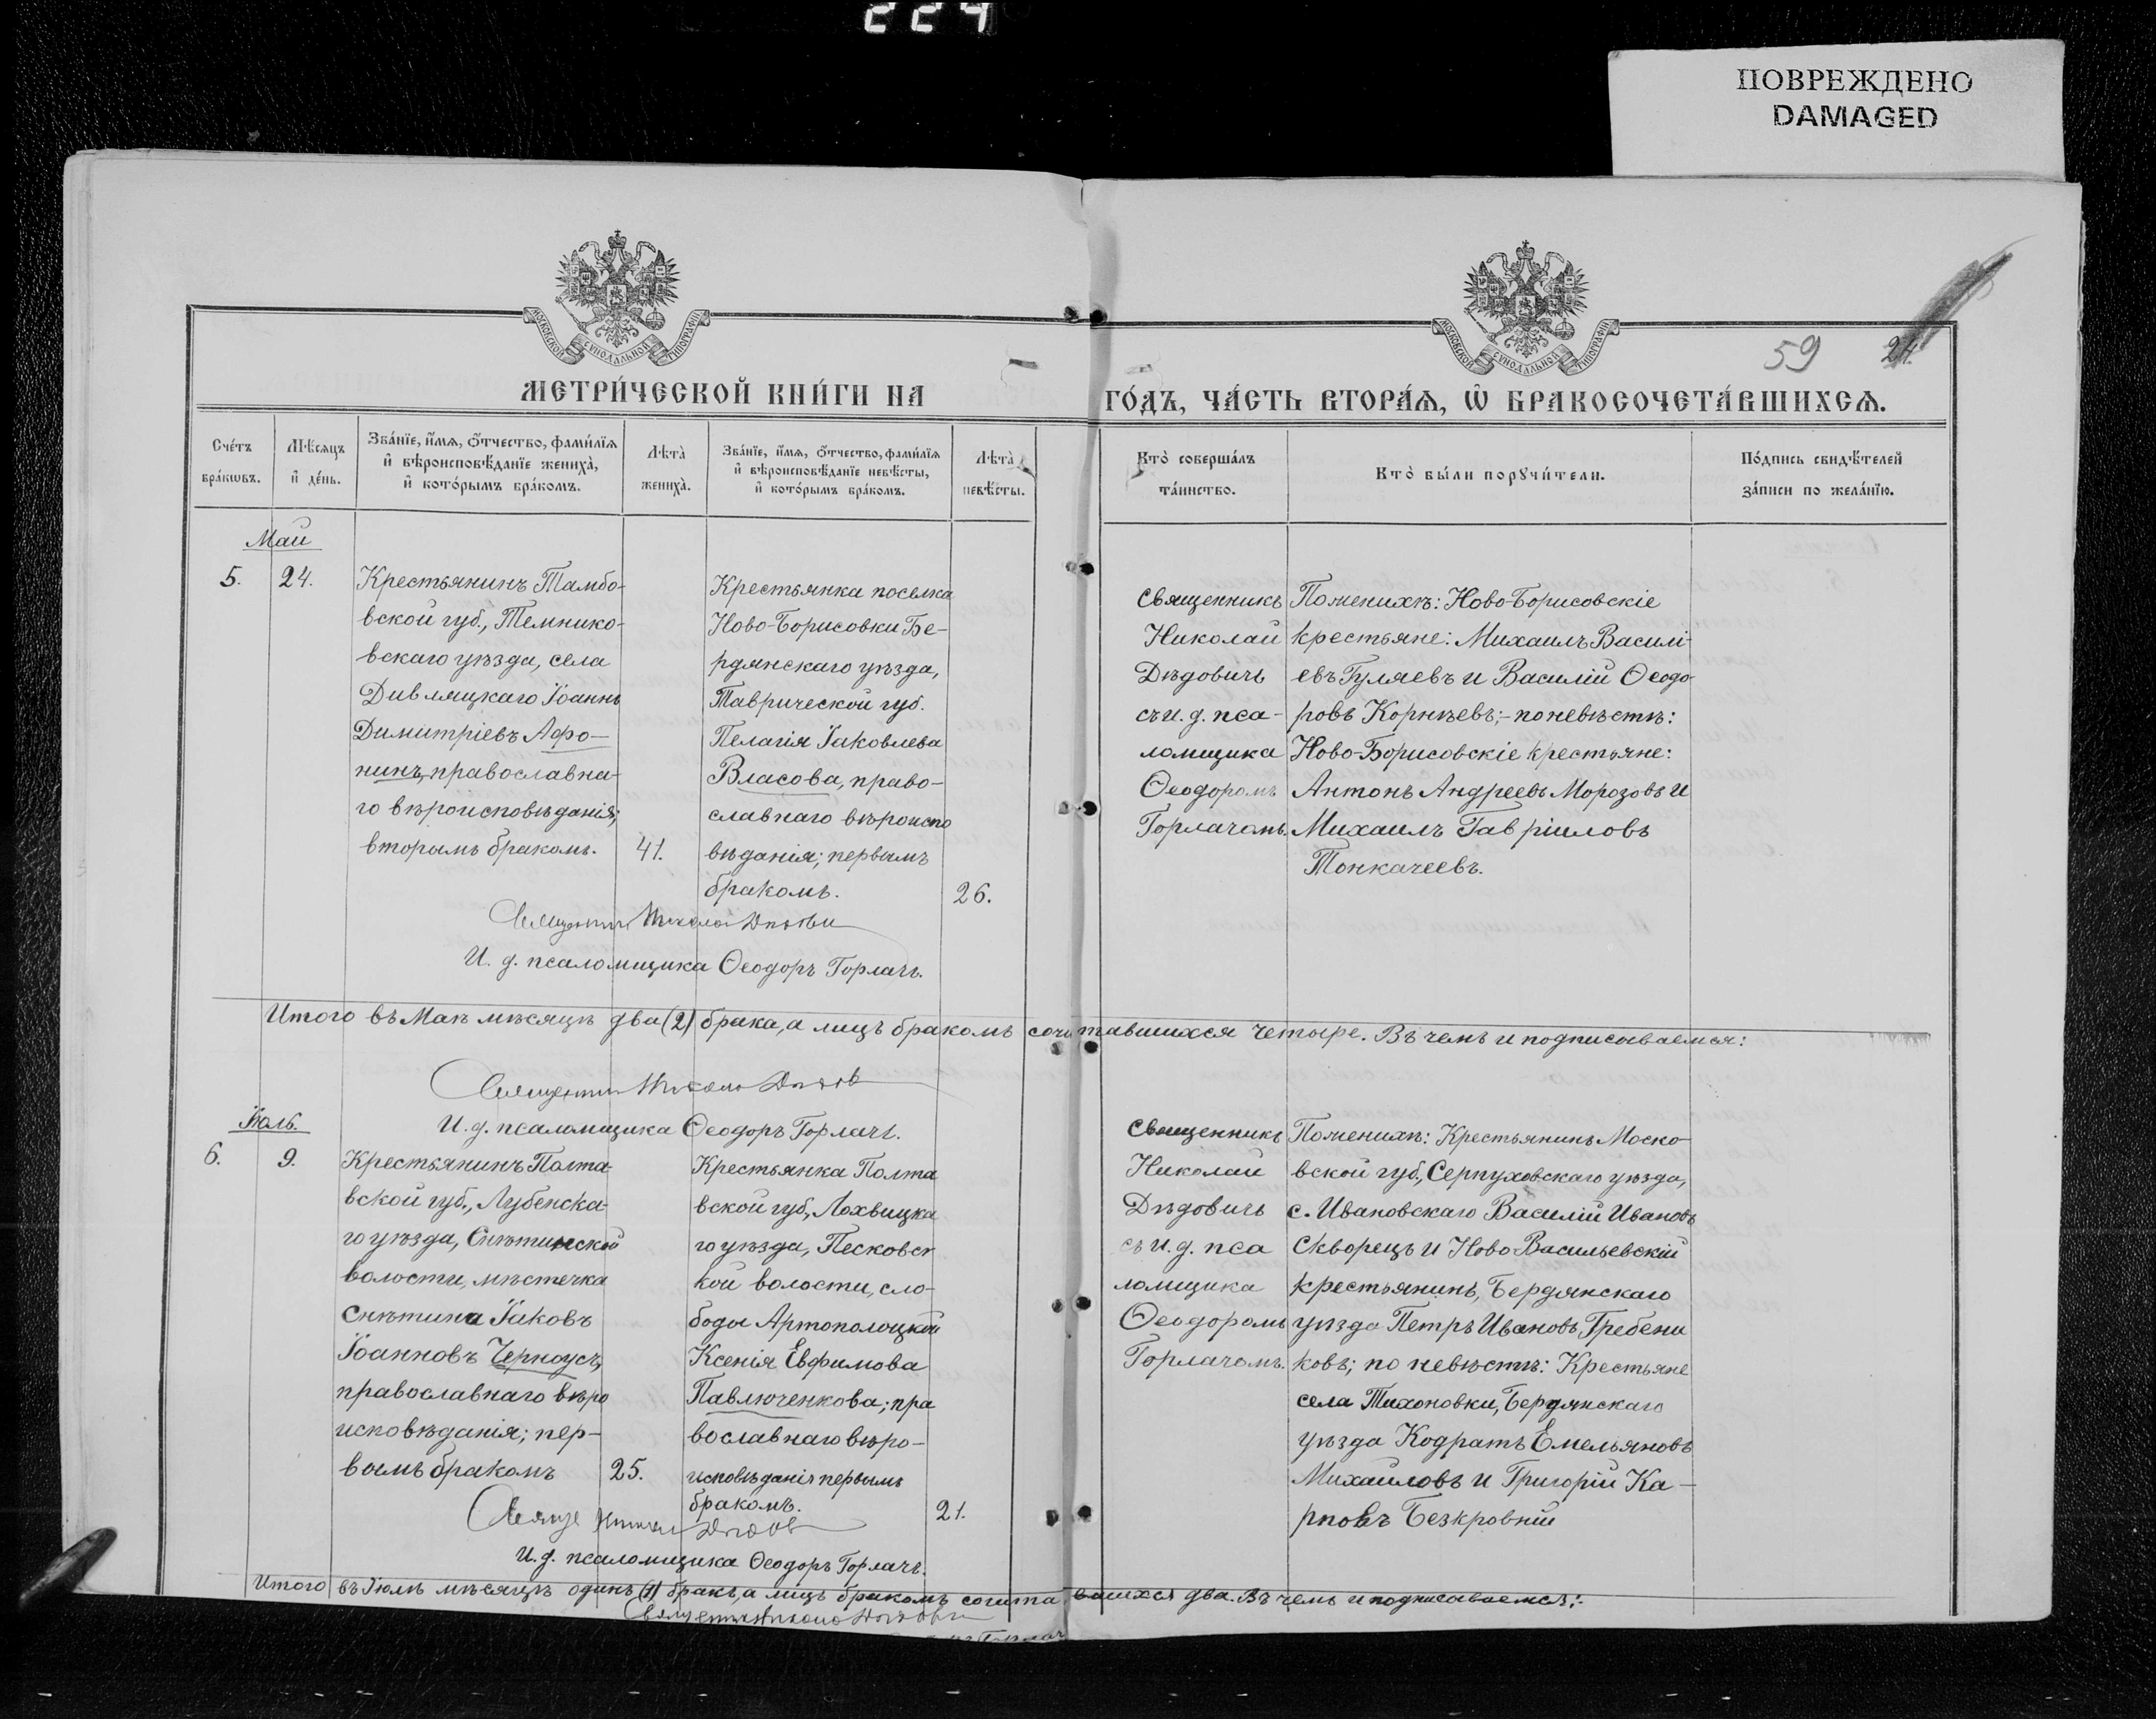 224
ПОВРЕЖДЕНО
DAMAGED
МОСКОВСКОЙ СѴНОДАЛЬНОЙ ТИПОГРАФІИ
МОСКОВСКОЙ СѴНОДАЛЬНОЙ ТИПОГРАФІИ
59 24.
МЕТРИ́ЧЕСКОЙ КНИ́ГИ НА
ГО́ДЪ, ЧА́СТЬ ВТОРА́Ѧ, Ѡ҆ БРАКОСОЧЕТА́ВШИХСѦ.
Сче́тъ
бра́кѡвъ.
Мѣ́сѧцъ
и҆ де́нь.
Зва́нїе, и҆́мѧ, ѻ҆́тчество, фами́лїѧ
и҆ вѣроисповѣ́данїе жениха̀,
и҆ кото́рымъ бра́комъ.
Лѣ́та̀
жениха̀.
Зва́нїе, и҆́мѧ, ѻ҆́тчество, фами́лїѧ
и҆ вѣроисповѣ́данїе невѣ́сты,
и҆ кото́рымъ бра́комъ.
Лѣ́та̀
невѣ́сты.
Кто̀ соверша́лъ
та́инство.
Кто̀ бы́ли порꙋчи́тели.
По́дпись свидѣ́телей
за́писи по жела́нїю.
Май
5.
24.
Крестьянинъ Тамбо-
вской губ., Темнико-
вскаго уѣзда, села
Дивляцкаго Іоаннъ
Димитріевъ Афо-
нинъ, православна-
го вѣроисповѣданія;
вторымъ бракомъ.
41.
Крестьянка поселка
Ново-Борисовки Бе-
рдянскаго уѣзда,
Таврической губ.
Пелагія Іаковлева
Власова, право-
славнаго вѣроиспо
вѣданія; первымъ
бракомъ.
26.
Священникъ
Николай
Дѣдовичъ
съ и. д. пса-
ломщика
Ѳеодоромъ
Горлачомъ.
По женихѣ: Ново-Борисовскіе
крестьяне: Михаилъ Василі-
евъ Гуляевъ и Василій Ѳеодо-
ровъ Корнѣевъ; - по невѣстѣ:
Ново-Борисовскіе крестьяне:
Антонъ Андреевъ Морозовъ и
Михаилъ Гавріиловъ
Тонкачеевъ.
Священникъ Николай Дѣдови
И. д. псаломщика Ѳеодоръ Горлачъ.
Итого въ Маѣ мѣсяцѣ два (2) брака, а лицъ бракомъ сочитавшихся четыре. Въ чемъ и подписываемся:
Священник Николай Дѣдов
И. д. псаломщика Ѳеодоръ Горлачъ.
Іюль.
6.
9.
Крестьянинъ Полта-
вской губ., Лубенска-
го уѣзда, Снѣтинской
волости, мѣстечка
Снѣтина Іаковъ
Іоанновъ Черноусъ,
православнаго вѣро
исповѣданія; пер-
вымъ бракомъ
25.
Крестьянка Полта
вской губ., Лохвицка
го уѣзда, Песковс
кой волости, сло-
боды Артополоцкой
Ксенія Евфимова
Павлюченкова; пра
вославнаго вѣро-
исповѣданія первымъ
бракомъ.
21.
Священникъ
Николай
Дѣдовичъ
съ и. д. пса
ломщика
Ѳеодоромъ
Горлачомъ.
По женихѣ: Крестьянинъ Моско-
вской губ., Серпуховскаго уѣзда,
с. Ивановскаго Василій Ивановъ
Скворецъ и Ново-Васильевскій
крестьянинъ, Бердянскаго
уѣзда Петръ Ивановъ Гребени
ковъ; по невѣстѣ: Крестьяне
села Тихоновки, Бердянскаго
уѣзда Кодратъ Емельяновъ
Михайловъ и Григорій Ка-
рповъ Безкровній
Священ Николай Дѣдов
И. д. псаломщика Ѳеодоръ Горлачъ.
Итого въ Іюлѣ мѣсяцѣ одинъ (1) бракъ, а лицъ бракомъ сочитавшихся два. Въ чемъ и подписываемся:
Священник Николай Дѣдович
Горлач